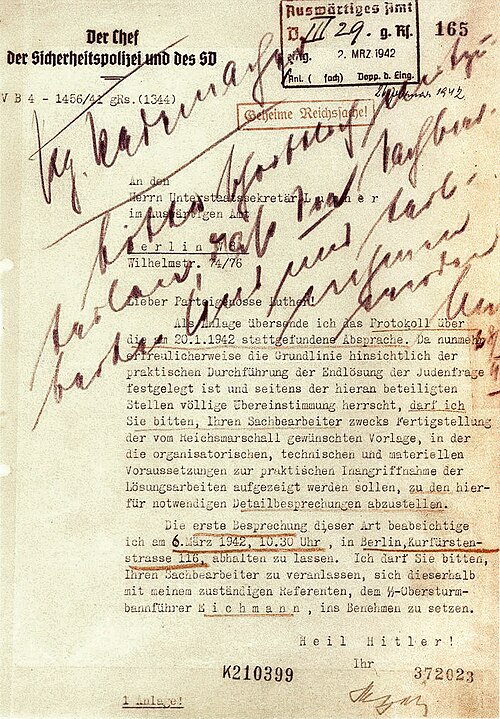 Auswärtiges Amt
D. III 29. g. Rs.
eing. 2. MRZ. 1942
Anl. ( fach) Dopp. d. Eing.
165
Der Chef
der Sicherheitspolizei und des SD
V B 4 - 1456/41 gRs. (1344)
1942
Geheime Reichssache!
Pg. Rademacher
bitte
An den
Herrn Unterstaatssekretär L u t h e r
im Auswärtigen Amt
B e r l i n W 8
Wilhelmstr. 74/76
Lieber Parteigenosse Luther!
Als Anlage übersende ich das Protokoll über
die am 20.1.1942 stattgefundene Absprache. Da nunmehr
erfreulicherweise die Grundlinie hinsichtlich der
praktischen Durchführung der Endlösung der Judenfrage
festgelegt ist und seitens der hieran beteiligten
Stellen völlige Übereinstimmung herrscht, darf ich
Sie bitten, Ihren Sachbearbeiter zwecks Fertigstellung
der vom Reichsmarschall gewünschten Vorlage, in der
die organisatorischen, technischen und materiellen
Voraussetzungen zur praktischen Inangriffnahme der
Lösungsarbeiten aufgezeigt werden sollen, zu den hier-
für notwendigen Detailbesprechungen abzustellen.
Die erste Besprechung dieser Art beabsichtige
ich am 6.März 1942, 10.30 Uhr, in Berlin, Kurfürsten-
strasse 116, abhalten zu lassen. Ich darf Sie bitten,
Ihren Sachbearbeiter zu veranlassen, sich dieserhalb
mit meinem zuständigen Referenten, dem ᛋᛋ-Obersturm-
bannführer E i c h m a n n , ins Benehmen zu setzen.
H e i l  H i t l e r !
Ihr
K210399
372023
1 Anlage!